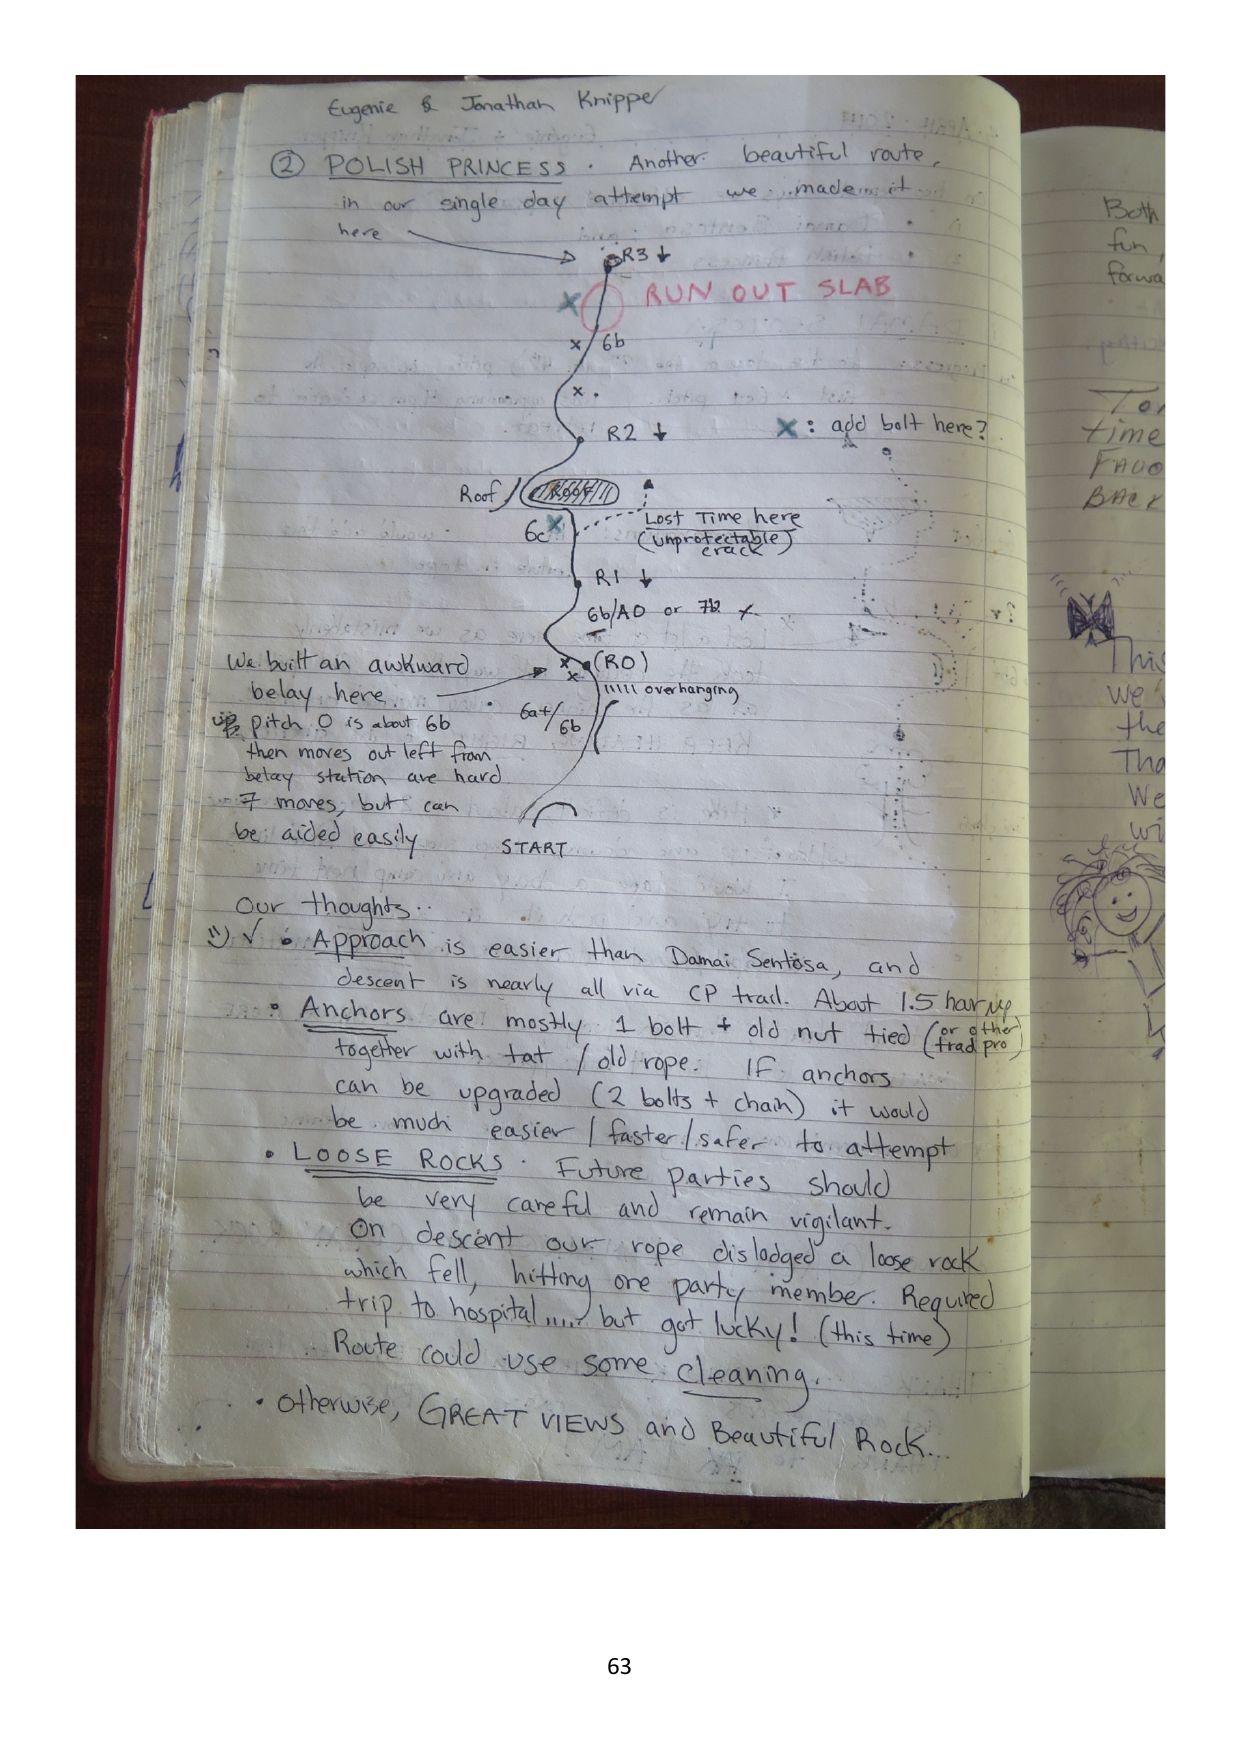 Eugenie & Jonathan Knippe
② POLISH PRINCESS. Another beautiful route,
in our single day attempt we made it
here
R3 ↓
x
RUN OUT SLAB
x 6b
x
R2 ↓
x : add bolt here?
Roof
ROOF
6c x
Lost Time here
(unprotectable)
crack
R1 ↓
6b/A0 or 7b x
x (R0)
x
We built an awkward
belay here.
overhanging
6a+/
6b
pitch 0 is about 6b
then moves out left from
belay station are hard
7 moves, but can
be aided easily
START
Our thoughts..
✓ • Approach is easier than Damai Sentosa, and
descent is nearly all via CP trail. About 1.5 hour up
• Anchors are mostly 1 bolt + old nut tied (or other
trad pro)
together with tat / old rope. IF anchors
can be upgraded (2 bolts + chain) it would
be much easier / faster / safer to attempt
• LOOSE ROCKS. Future parties should
be very careful and remain vigilant.
On descent our rope dislodged a loose rock
which fell, hitting one party member. Required
trip to hospital..... but got lucky! (this time)
Route could use some cleaning.
• Otherwise, GREAT VIEWS and Beautiful Rock...
Both
fun,
forwa
time
BACK
This
we
the
Tha
We
wi
63